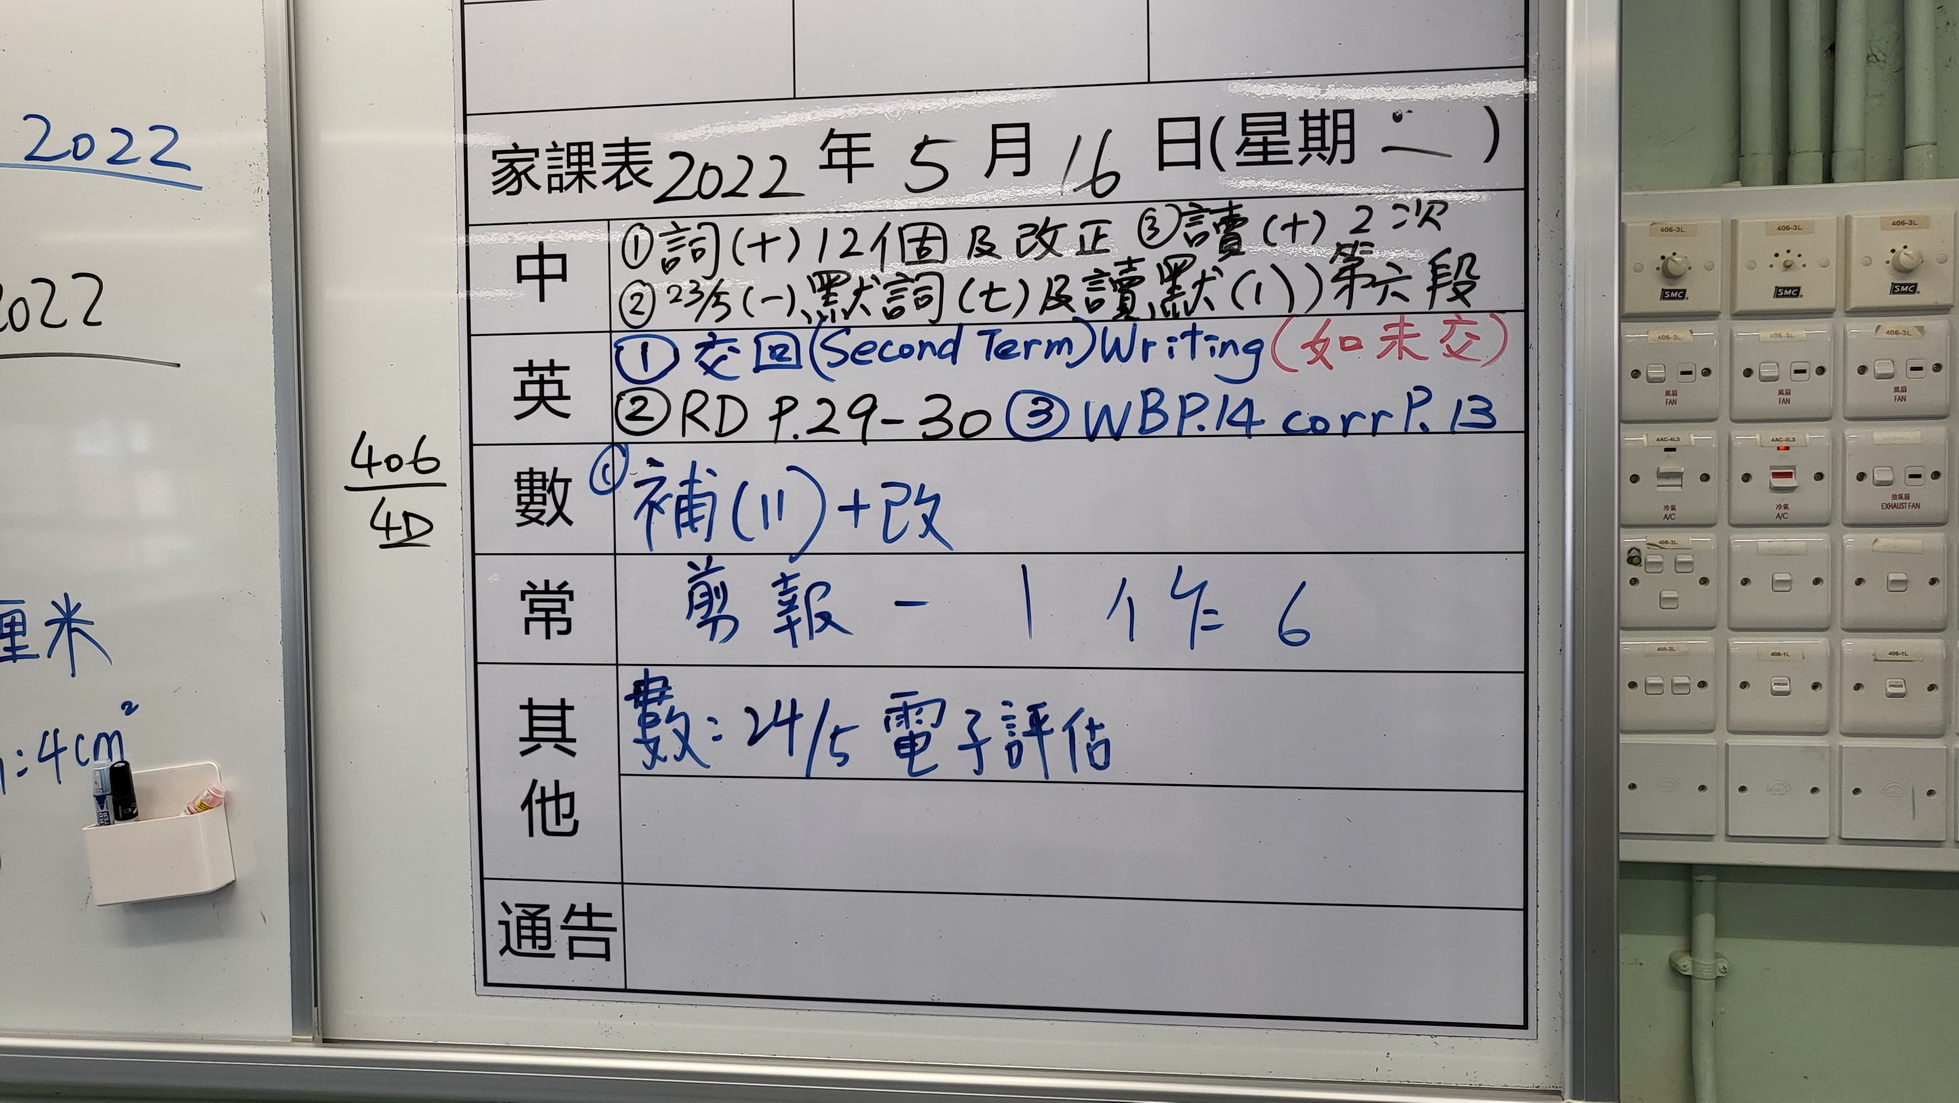 2022
2022
厘米
:4cm²
406
4D
家課表2022年5月16日(星期二)
中
①詞(十)12個及改正 ③讀(十)2次
②23/5(一)默詞(七)及讀默(1))第六段
英
①交回(Second Term)Writing(如未交)
②RD P.29-30 ③WBP.14 corrP.13
數
①補(11)+改
常
剪報-1 作6
其他
數:24/5電子評估
通告
406-3L 406-3L 406-3L
SMC SMC SMC
406-3L 406-3L 406-3L
風扇 風扇 風扇
FAN FAN FAN
4AC-4L3 4AC-3L3
冷氣 冷氣 抽氣扇
A/C A/C EXHAUST FAN
406-2L
406-2L 406-1L 406-1L
PRESS PRESS